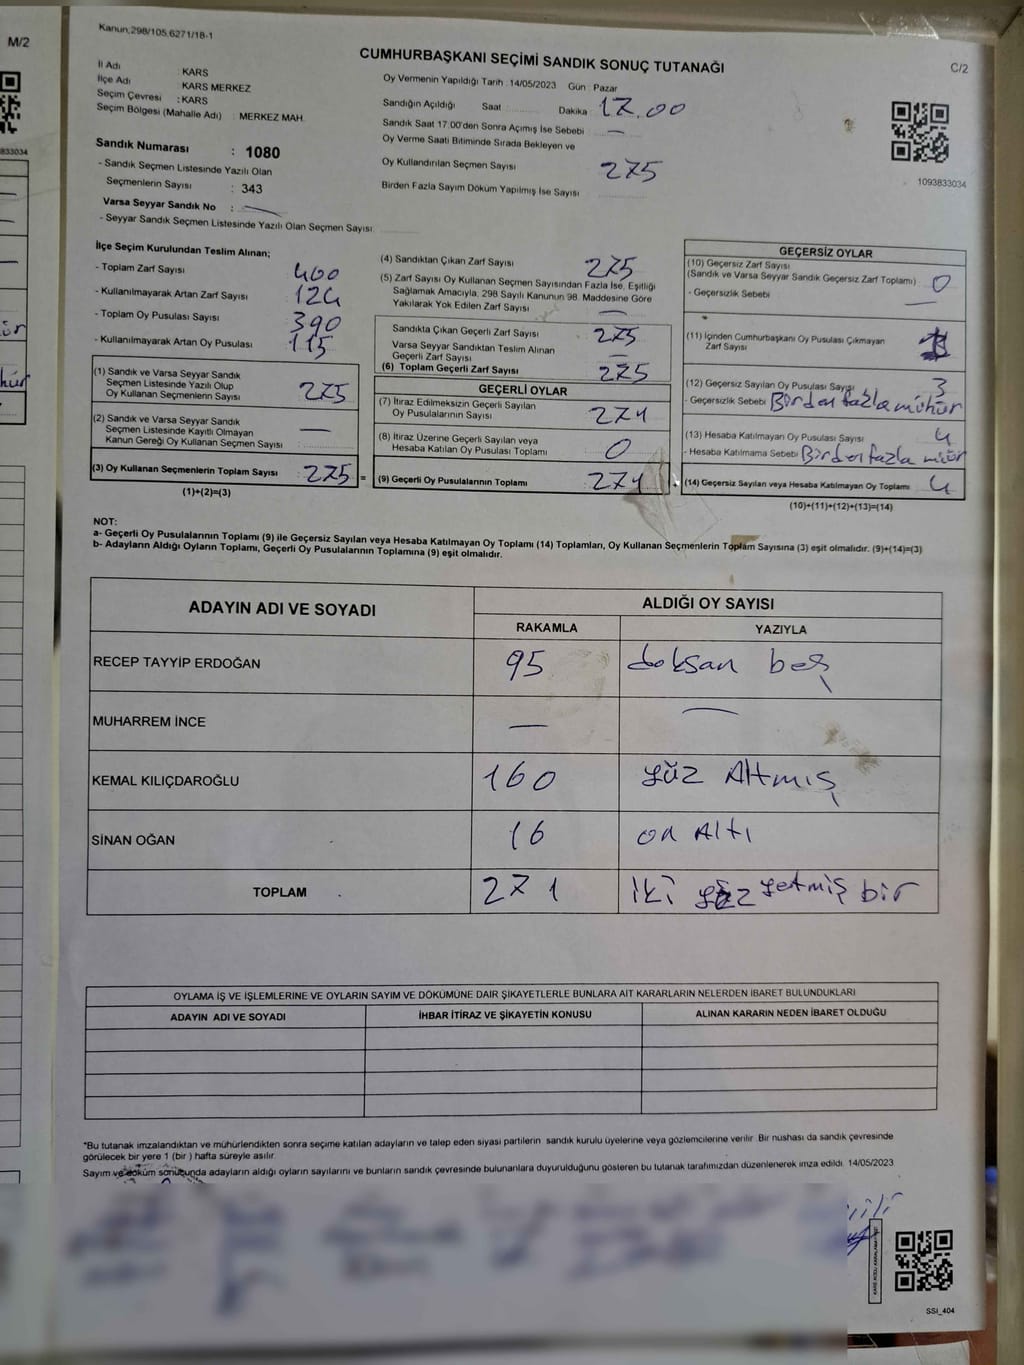 M/2
833034
Kanun,298/105,6271/18-1
CUMHURBAŞKANI SEÇİMİ SANDIK SONUÇ TUTANAĞI
C/2
İl Adı : KARS
İlçe Adı : KARS MERKEZ
Seçim Çevresi : KARS
Seçim Bölgesi (Mahalle Adı) : MERKEZ MAH.
Oy Vermenin Yapıldığı Tarih : 14/05/2023 Gün : Pazar
Sandığın Açıldığı Saat Dakika 17.00
Sandık Saat 17.00'den Sonra Açımış İse Sebebi —
Oy Verme Saati Bitiminde Sırada Bekleyen ve
Oy Kullandırılan Seçmen Sayısı 275
Birden Fazla Sayım Döküm Yapılmış İse Sayısı
1093833034
Sandık Numarası : 1080
- Sandık Seçmen Listesinde Yazılı Olan
Seçmenlerin Sayısı : 343
Varsa Seyyar Sandık No : —
- Seyyar Sandık Seçmen Listesinde Yazılı Olan Seçmen Sayısı
İlçe Seçim Kurulundan Teslim Alınan;
- Toplam Zarf Sayısı 400
- Kullanılmayarak Artan Zarf Sayısı 124
- Toplam Oy Pusulası Sayısı 390
- Kullanılmayarak Artan Oy Pusulası 115
(1) Sandık ve Varsa Seyyar Sandık
Seçmen Listesinde Yazılı Olup
Oy Kullanan Seçmenlerin Sayısı : 275
(2) Sandık ve Varsa Seyyar Sandık
Seçmen Listesinde Kayıtlı Olmayan
Kanun Gereği Oy Kullanan Seçmen Sayısı : —
(3) Oy Kullanan Seçmenlerin Toplam Sayısı 275 =
(1)+(2)=(3)
(4) Sandıktan Çıkan Zarf Sayısı 275
(5) Zarf Sayısı Oy Kullanan Seçmen Sayısından Fazla İse, Eşitliği
Sağlamak Amacıyla, 298 Sayılı Kanunun 98. Maddesine Göre
Yakılarak Yok Edilen Zarf Sayısı —
Sandıkta Çıkan Geçerli Zarf Sayısı 275
Varsa Seyyar Sandıktan Teslim Alınan
Geçerli Zarf Sayısı —
(6) Toplam Geçerli Zarf Sayısı 275
GEÇERLİ OYLAR
(7) İtiraz Edilmeksizin Geçerli Sayılan
Oy Pusulalarının Sayısı 271
(8) İtiraz Üzerine Geçerli Sayılan veya
Hesaba Katılan Oy Pusulası Toplamı 0
(9) Geçerli Oy Pusulalarının Toplamı 271
GEÇERSİZ OYLAR
(10) Geçersiz Zarf Sayısı
(Sandık ve Varsa Seyyar Sandık Geçersiz Zarf Toplamı) 0
- Geçersizlik Sebebi —
(11) İçinden Cumhurbaşkanı Oy Pusulası Çıkmayan
Zarf Sayısı
(12) Geçersiz Sayılan Oy Pusulası Sayısı 3
- Geçersizlik Sebebi Birden fazla mühür
(13) Hesaba Katılmayan Oy Pusulası Sayısı 4
- Hesaba Katılmama Sebebi
(14) Geçersiz Sayılan veya Hesaba Katılmayan Oy Toplamı 4
(10)+(11)+(12)+(13)=(14)
NOT:
a- Geçerli Oy Pusulalarının Toplamı (9) ile Geçersiz Sayılan veya Hesaba Katılmayan Oy Toplamı (14) Toplamları, Oy Kullanan Seçmenlerin Toplam Sayısına (3) eşit olmalıdır. (9)+(14)=(3)
b- Adayların Aldığı Oyların Toplamı, Geçerli Oy Pusulalarının Toplamına (9) eşit olmalıdır.
ADAYIN ADI VE SOYADI
ALDIĞI OY SAYISI
RAKAMLA YAZIYLA
RECEP TAYYİP ERDOĞAN 95 doksan beş
MUHARREM İNCE — —
KEMAL KILIÇDAROĞLU 160 yüz Altmış
SİNAN OĞAN 16 on Altı
TOPLAM 271 iki yüz yetmiş bir
OYLAMA İŞ VE İŞLEMLERİNE VE OYLARIN SAYIM VE DÖKÜMÜNE DAİR ŞİKAYETLERLE BUNLARA AİT KARARLARIN NELERDEN İBARET BULUNDUKLARI
ADAYIN ADI VE SOYADI İHBAR İTİRAZ VE ŞİKAYETİN KONUSU ALINAN KARARIN NEDEN İBARET OLDUĞU
*Bu tutanak imzalandıktan ve mühürlendikten sonra seçime katılan adayların ve talep eden siyasi partilerin sandık kurulu üyelerine veya gözlemcilerine verilir. Bir nushası da sandık çevresinde
görülecek bir yere 1 (bir ) hafta süreyle asılır.
Sayım ve döküm sonucunda adayların aldığı oyların sayılarını ve bunların sandık çevresinde bulunanlara duyurulduğunu gösteren bu tutanak tarafımızdan düzenlenerek imza edildi. 14/05/2023
SSI_404